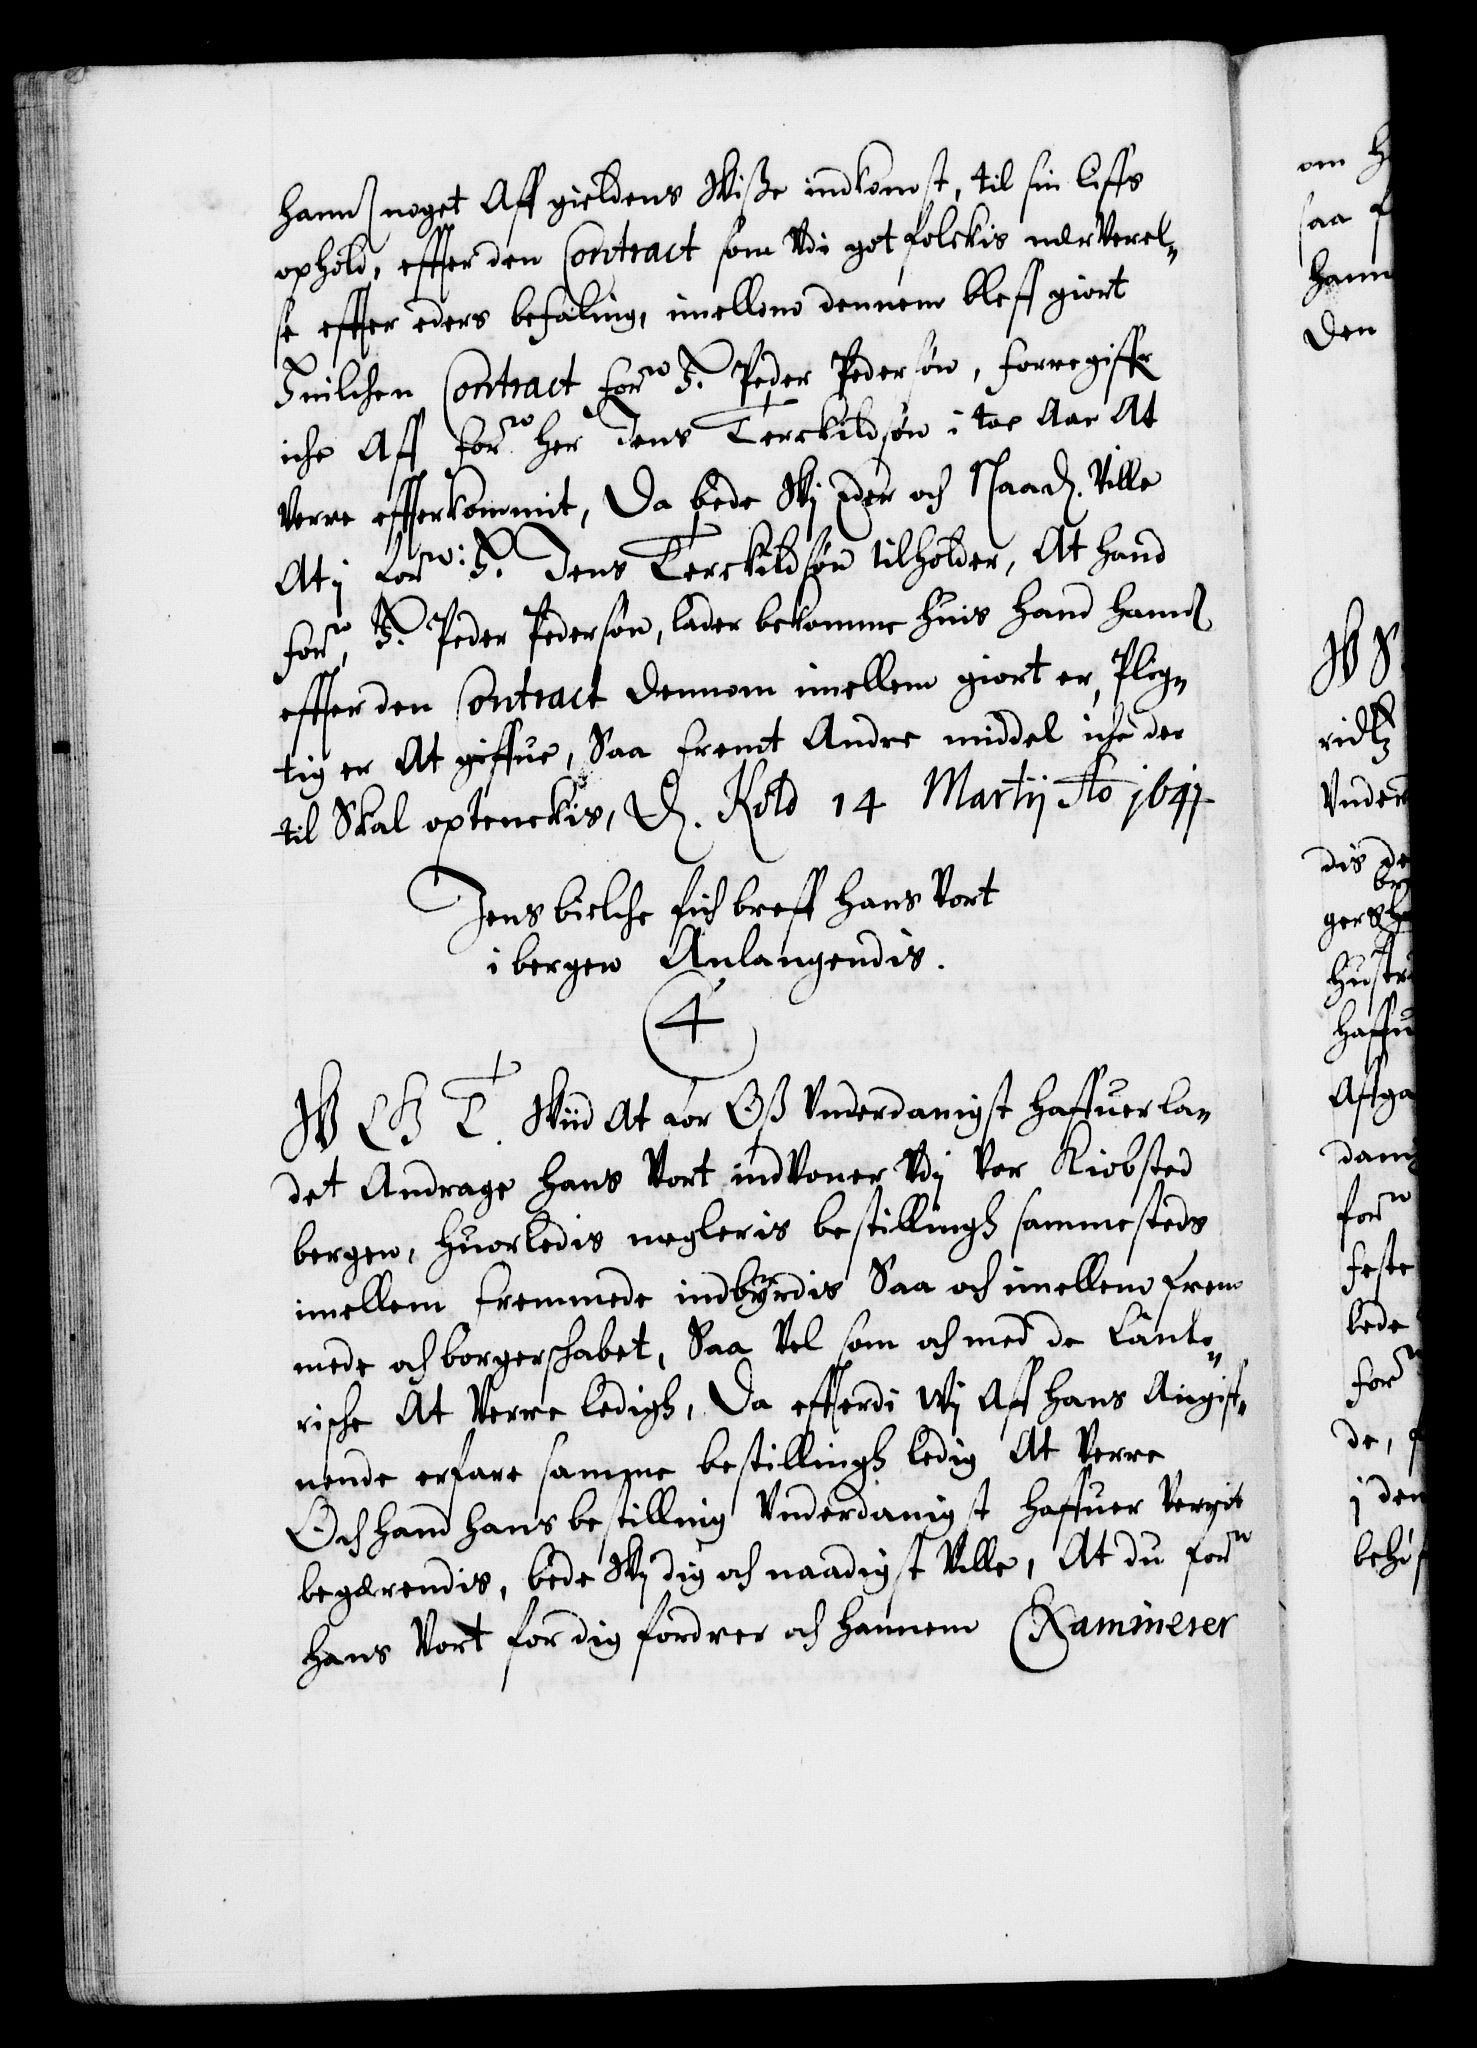 hannem noget Aff gieldens Wiße indkomst, til sin liffs
ophold, effter den Contract som Vdi got folckis nærverel¬
se effter eders befaling, imellom dennem bleff giort
Huilchen Contract forne H. Peder Pedersøn, forregiffr
iche Aff forne her Jens Terckildsøn i toe Aar At
Verre effterkommit, Da bede Wij eder och Naad. Ville
At j forne: H. Jens Terckildsøn tilholder, At hand
forne, H. Peder Pedersøn, lader bekomme huis hand hannem
effter den Contract dennom imellem giort er, Plig¬
tig er At giffue, Saa fremt Andre middel iche der
til Skal optenckis, D. Kold 14 Martij Ao 1641
Jens bielche fich breff hans Vort
i bergen Anlangendis.
4
W C G T. Wiid At for Oß Vnderdanigst haffuer la¬
det Andrage hans Vort indVoner Vdj Vor Kiobsted
bergen, huorledis megleris bestillingh sammesteds
imellem fremmede indbyrdis Saa och imellem frem
mede och borgerschabet, Saa Vel som och med de Cante¬
rische At Verre ledigh, Da effterdi Wj Aff hans Angif¬
uende erfare samme bestillingh ledig At Verre
Och hand hans bestilling Vnderdanigst haffuer Verrit
begærendis, bede Wij dig och naadigst Ville, At du forne
hans Vort for dig fordrer och hannem Examinerer
om
saa
hann
den
W
Vnder
dis de
hustr
haffu
Affga
dani
forne
feste
bede
for
de,
j den